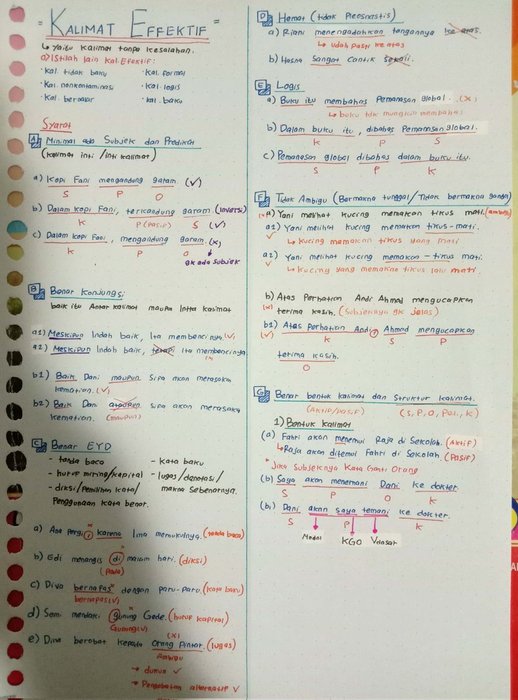 = KALIMAT EFFEKTIF =
↳ yaitu kalimat tanpa kesalahan.
a) Istilah lain kal. Efektif:
• kal. tidak baku • kal. formal
• kal. nonkontaminasi • kal. logis
• kal. bernalar • kal. baku
Syarat
A Minimal ada Subjek dan Predikat
(kalimat inti / inti kalimat)
a) Kopi Fani mengandung garam. (√)
S P O
b) Dalam kopi Fani, terkandung garam (inversi)
k P (pasif) S (√)
c) Dalam kopi Fani, mengandung garam. (x)
k P O
gk ada subjek
B Benar Konjungsi
baik itu Antar kalimat maupun Intra kalimat
a1) Meskipun Indah baik, Ita membencinya (√)
a2) Meskipun Indah baik, tetapi Ita membencinya
(x)
b1) Baik Dani maupun Sipa akan merasakan
kematian. (√)
b2) Baik Dani ataupun Sipa akan merasakan
kematian. (maupun)
C Benar EYD
- tanda baca - kata baku
- huruf miring/kapital - lugas/denotasi/
- diksi/pemilihan kata/ makna sebenarnya.
Penggunaan kata benar.
a) Ana pergi, karena lina memukulnya. (tanda baca)
b) Edi menangis di malam hari. (diksi)
(pada)
c) Diva bernapas dengan paru-paru. (kata baku)
bernapas (√)
d) Sam mendaki gunung Gede. (huruf kapital)
Gunung (√)
(x)
e) Dina berobat kepada Orang Pintar. (lugas)
→ dukun √
→ Pengobatan alternatif √
D Hemat (tidak Pleonastis)
a) Riani menengadahkan tangannya ke atas.
↳ udah pasti ke atas
b) Hosna Sangat Cantik Sekali.
E Logis
a) Buku itu membahas Pemanasan global. (x)
↳ buku tdk mungkin membahas
b) Dalam buku itu, dibahas Pemanasan global.
k P S
c) Pemanasan global dibahas dalam buku itu.
S P k
F Tidak Ambigu (Bermakna tunggal / Tidak bermakna ganda)
(x) a) Yani melihat kucing memakan tikus mati. (ambigu)
a1) Yani melihat kucing memakan tikus-mati.
√ ↳ kucing memakan tikus yang mati
a1) Yani melihat kucing memakan - tikus mati.
√ ↳ Kucing yang memakan tikus lalu mati.
b) Atas Perhatian Andi Ahmad mengucapkan
(x) terima kasih. (Subjeknya gk jelas)
b1) Atas Perhatian Andi, Ahmad mengucapkan
(√) k S P
terima kasih.
O
G Benar bentuk kalimat dan Struktur kalimat.
(AKtif/pasif) (S, P, O, Pel., k)
1) Bentuk kalimat
(a) Fahri akan menemui Raja di Sekolah. (Aktif)
↳ Raja akan ditemui Fahri di Sekolah. (Pasif)
* Jika Subjeknya Kata Ganti Orang
(b) Saya akan menemani Dani ke dokter.
S P O k
(b) Dani akan saya temani ke dokter.
S P k
Modal KGO Vdasar